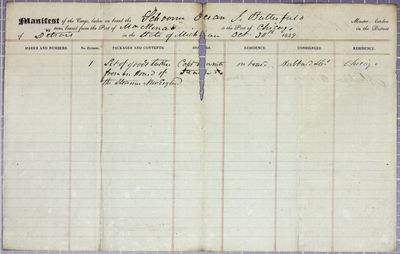 Manifest of the Cargo, laden on board the Schooner Ocean J. Butterfield Master, burden
tons, bound from the Port of Mackinac to the Port of Chicago in the District
of Detroit in the State of Michigan Oct. 30th 1839
MARKS AND NUMBERS. No. Entries. PACKAGES AND CONTENTS. SHIPPERS. RESIDENCE. CONSIGNEES. RESIDENCE.
1 Lot of goods taken Capt on board Hubbard & Co. Chicago
from on Board of
the Steamer New England